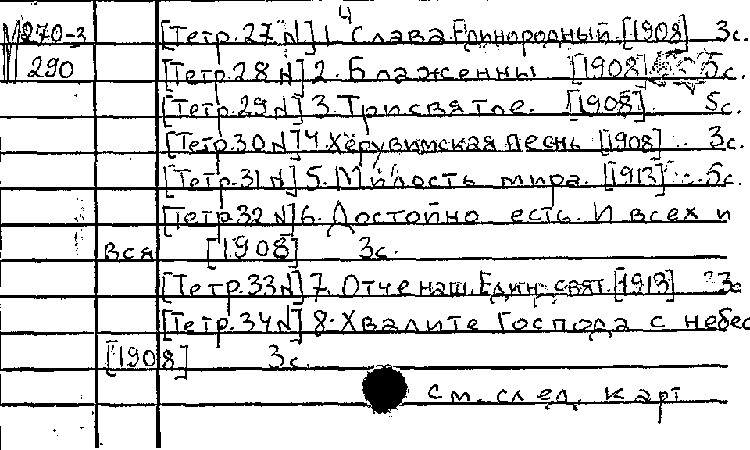 4
М 270-3 [Тетр. 27 N] 1. Слава. Единородный. [1908] 3с.
290 [Тетр. 28 N] 2. Блаженны [1908] 5с.
[Тетр. 29 N] 3. Трисвятое. [1908] 5с.
[Тетр. 30 N] 4. Херувимская песнь [1908] 3с.
[Тетр. 31 N] 5. Милость мира. [1913] 5с.
[Тетр. 32 N] 6. Достойно есть. И всех и
вся [1908] 3с.
[Тетр. 33 N] 7. Отче наш. Един свят. [1913] 3с
[Тетр. 34 N] 8. Хвалите Господа с небес
[1908] 3с.
см. след. карт